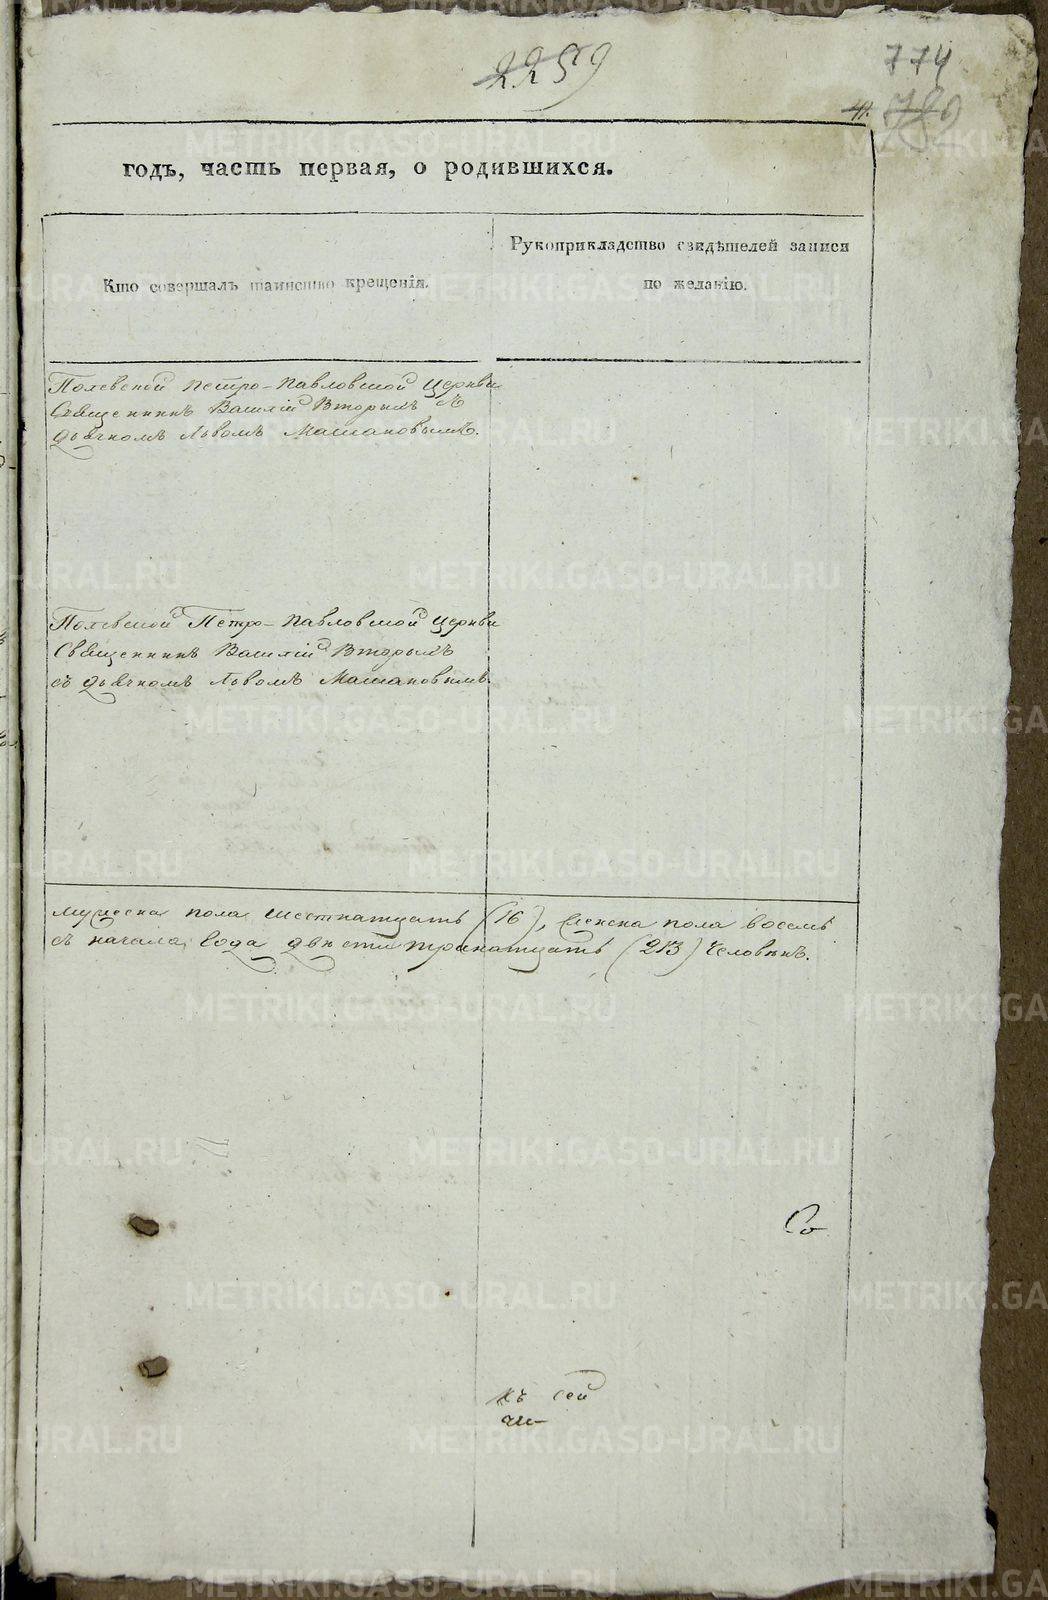 2259
774
41.
годъ, часть первая, о родившихся.
Кто совершалъ таинство крещенія.
Рукоприкладство свидѣтелей записи
по желанію.
Полевской Петро-Павловской Церкви
Священникъ Василій Вторымъ съ
дьячкомъ Львомъ
Полевской Петро-Павловской Церкви
Священникъ Василій Вторымъ
съ дьячкомъ Львомъ
мужеска пола шестнатцать (16), женска пола восемь
съ начала года двѣсти тринатцать (213) человѣкъ.
Со
къ сей
METRIKI.GASO-URAL.RU